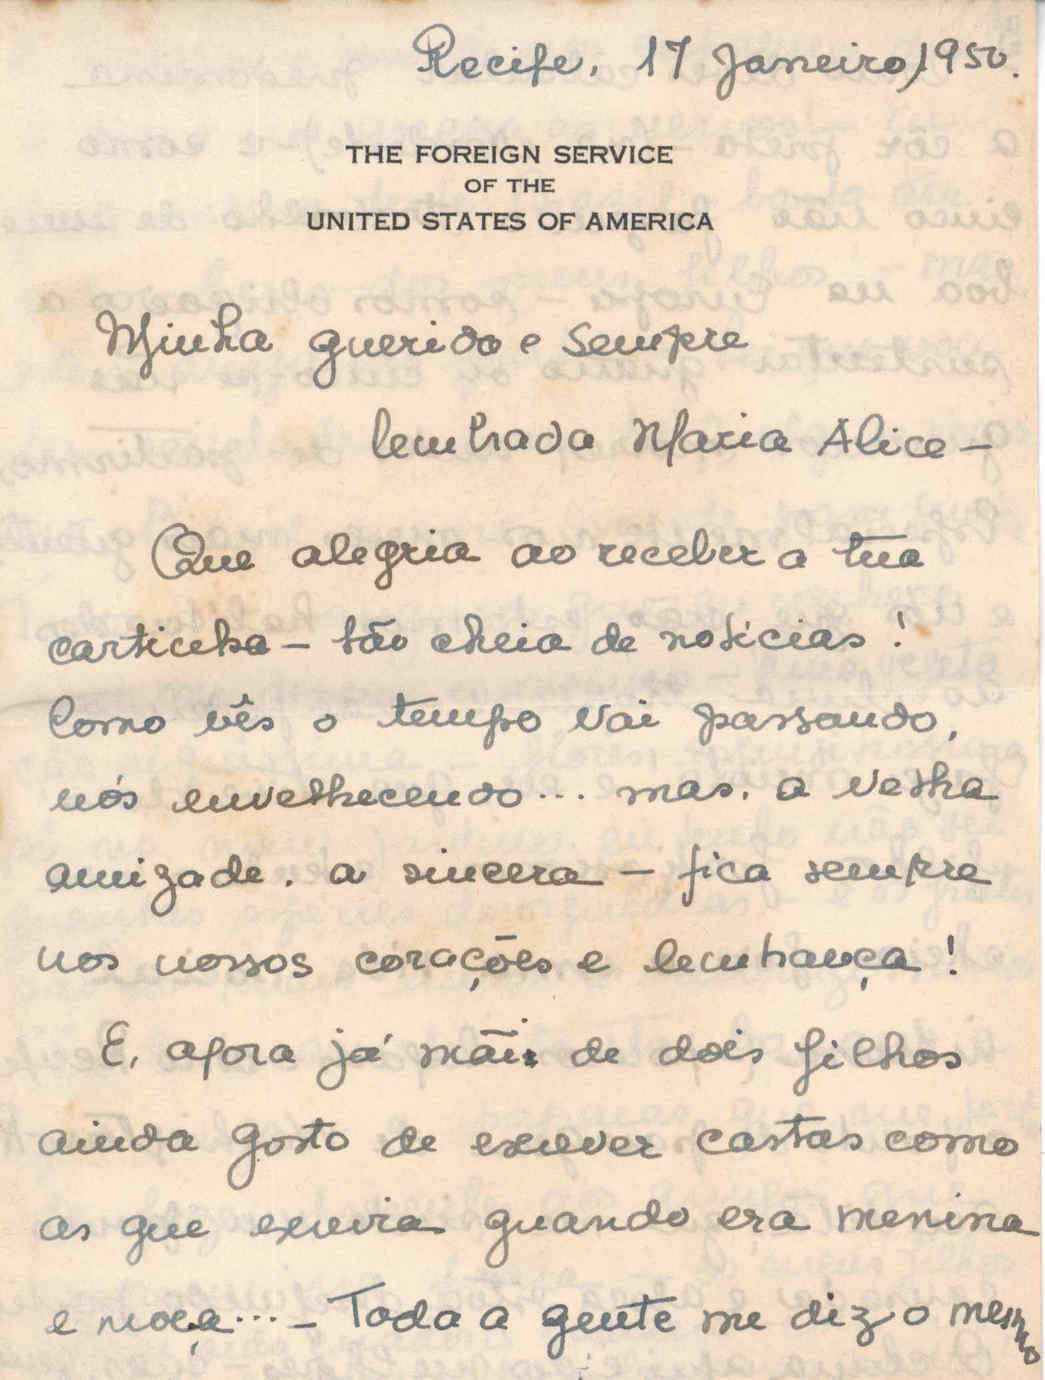 Recife, 17 Janeiro, 1950.
THE FOREIGN SERVICE
OF THE
UNITED STATES OF AMERICA
Minha querida e sempre
lembrada Maria Alice —
Que alegria ao receber a tua
cartinha — tão cheia de noticias !
Como vês o tempo vai passando,
nós envelhecendo ... mas. a velha
amizade. a sincera — fica sempre
nos nossos corações e lembrança !
E, agora já mãi de dois filhos
ainda gosto de escrever cartas como
as que escrevia quando era menina
e moça ... — Toda a gente me diz o mesmo